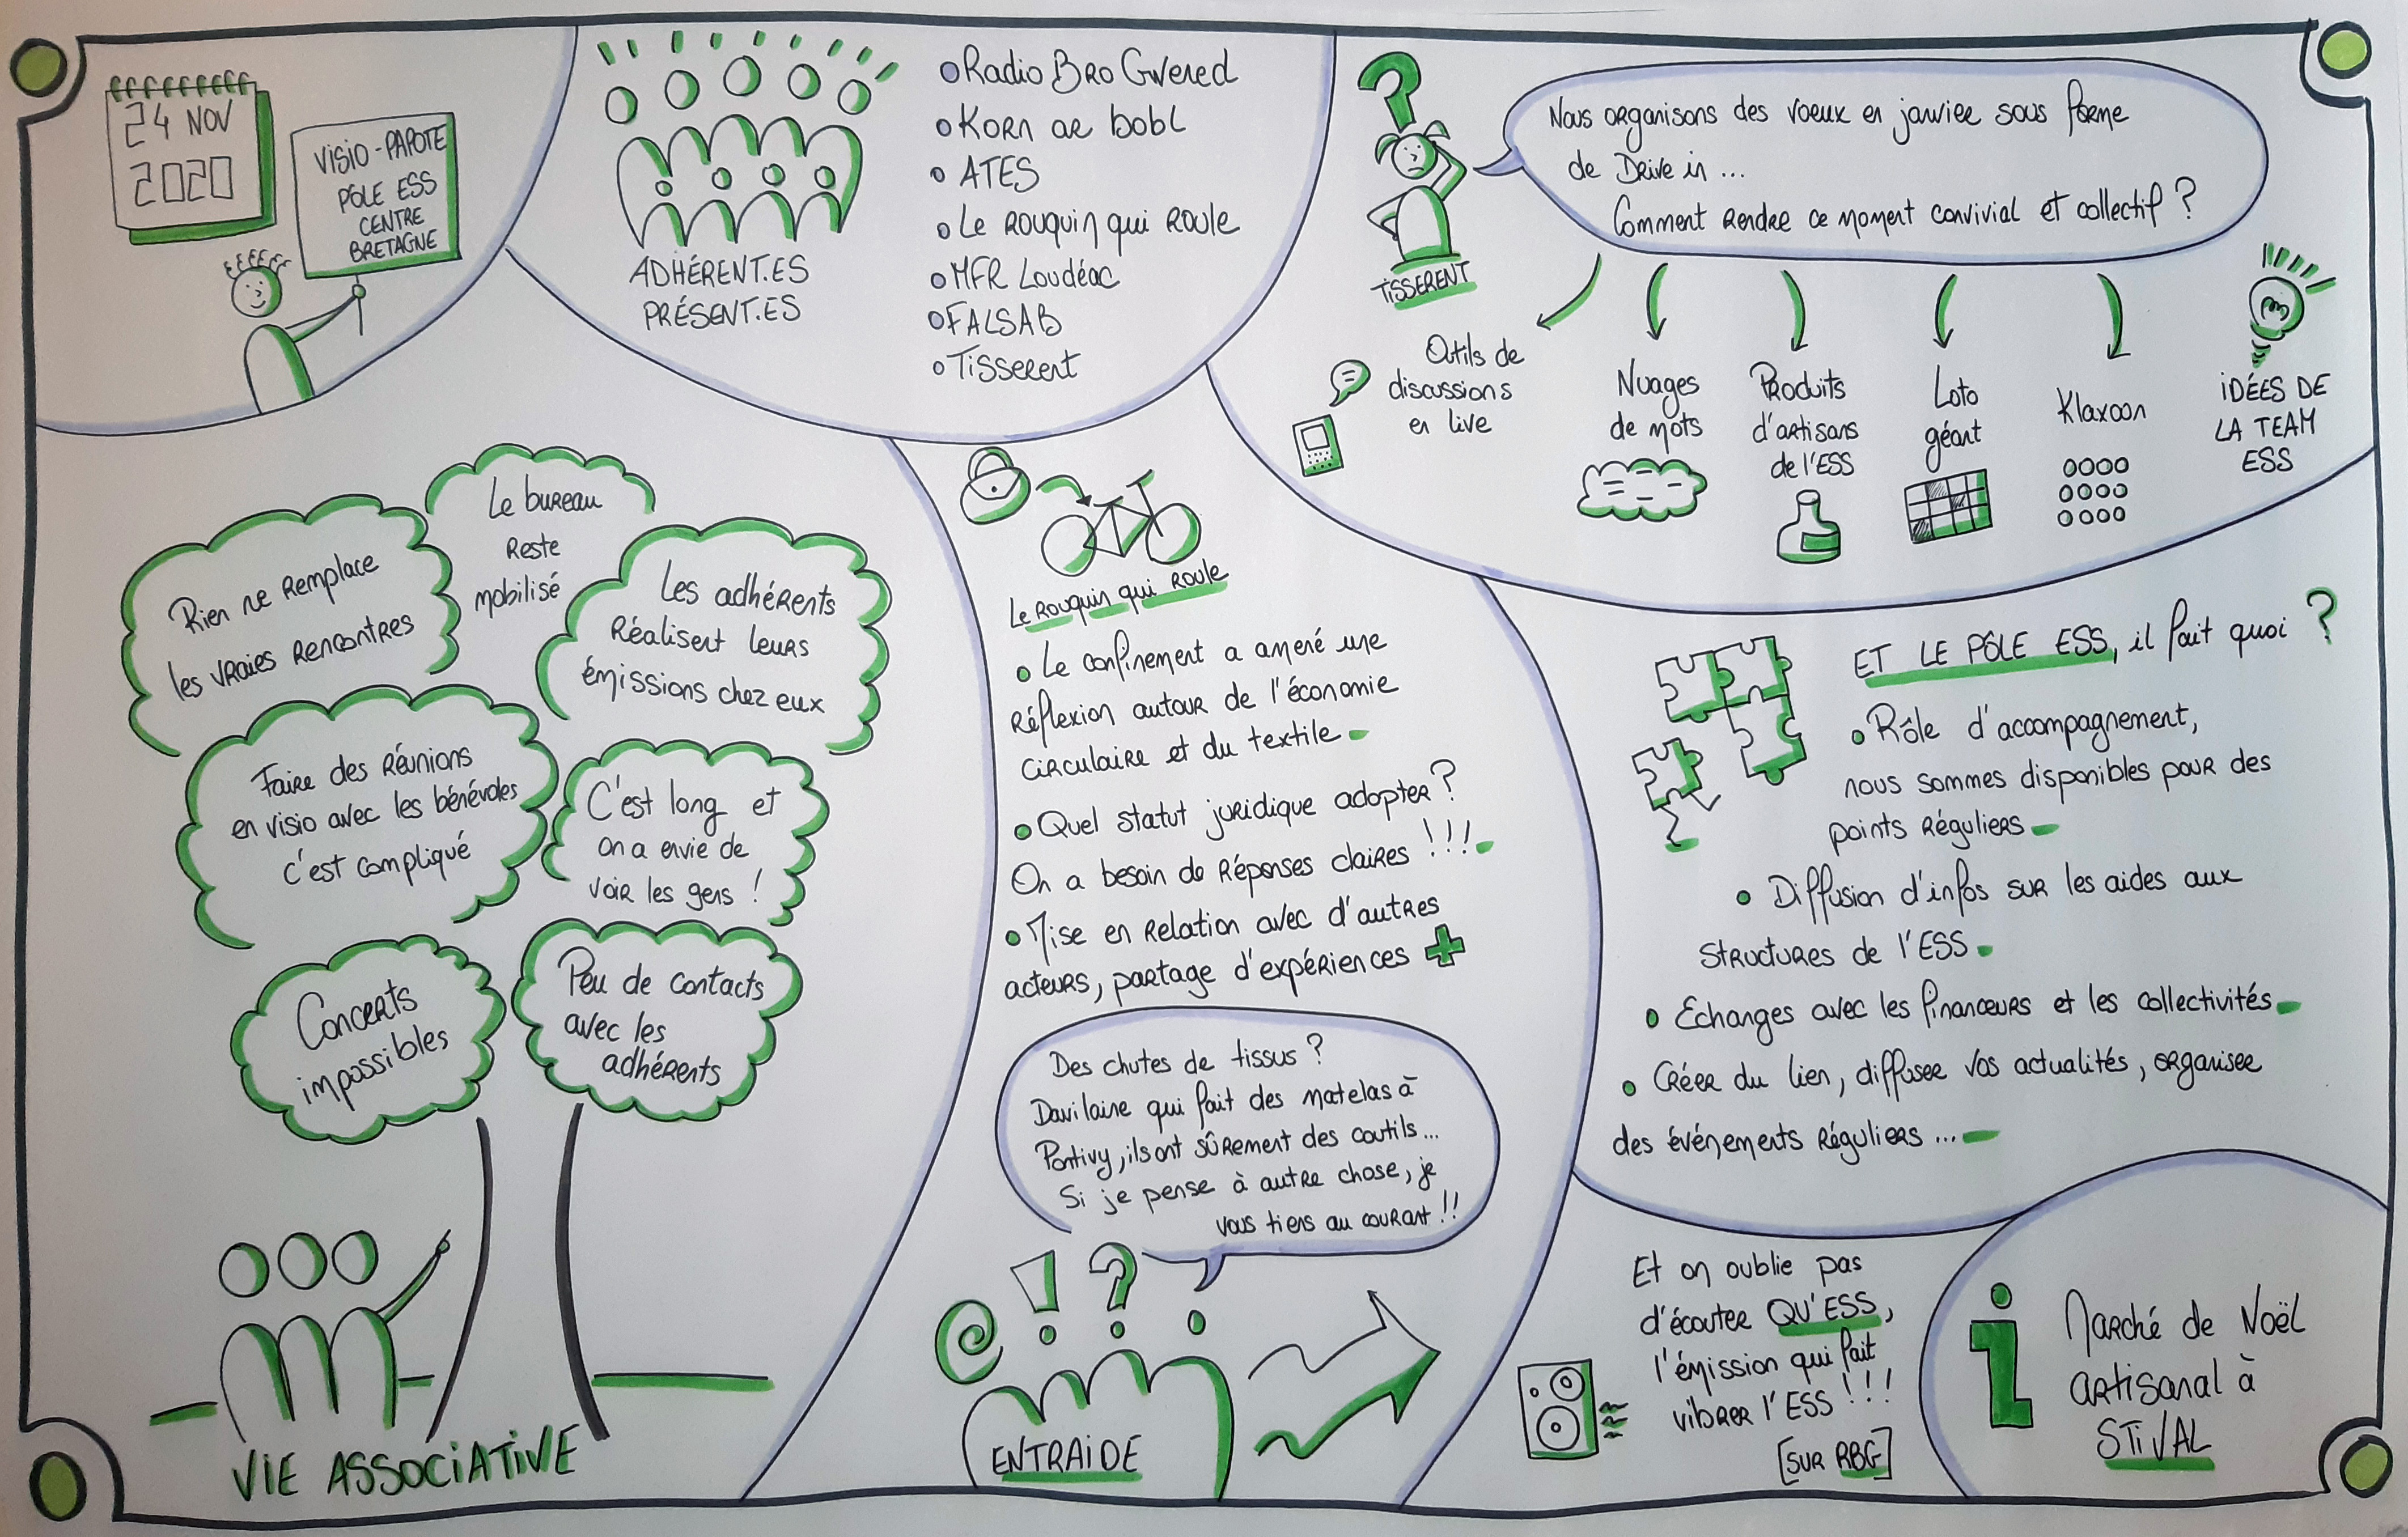 24 NOV
2020
VISIO-PAPOTE
PÔLE ESS
CENTRE
BRETAGNE
ADHÉRENT.ES
PRÉSENT.ES
Radio Bro Gwened
Korn ar bobl
ATES
Le Rouquin qui Roule
MFR Loudéac
FALSAB
Tisserent
?
TISSERENT
Nous organisons des voeux en janvier sous forme
de Drive in ...
Comment rendre ce moment convivial et collectif ?
Outils de
discussions
en live
Nuages
de mots
Produits
d'artisans
de l'ESS
Loto
géant
Klaxoon
IDÉES DE
LA TEAM
ESS
Le bureau
reste
mobilisé
Rien ne remplace
les vraies rencontres
Les adhérents
réalisent leurs
émissions chez eux
Faire des réunions
en visio avec les bénévoles
c'est compliqué
C'est long et
on a envie de
voir les gens !
Concerts
impossibles
Peu de contacts
avec les
adhérents
VIE ASSOCIATIVE
Le Rouquin qui Roule
Le confinement a amené une
réflexion autour de l'économie
circulaire et du textile
Quel statut juridique adopter ?
On a besoin de réponses claires !!!
Mise en relation avec d'autres
acteurs, partage d'expériences +
Des chutes de tissus ?
Davilaine qui fait des matelas à
Pontivy, ils ont sûrement des coutils...
Si je pense à autre chose, je
vous tiens au courant !!
@ ! ?
ENTRAIDE
ET LE PÔLE ESS, il fait quoi ?
Rôle d'accompagnement,
nous sommes disponibles pour des
points réguliers
Diffusion d'infos sur les aides aux
structures de l'ESS
Echanges avec les financeurs et les collectivités
Créer du lien, diffuser vos actualités, organiser
des événements réguliers ...
Et on oublie pas
d'écouter QU'ESS,
l'émission qui fait
vibrer l'ESS !!!
[SUR RBG]
i
Marché de Noël
artisanal à
STIVAL